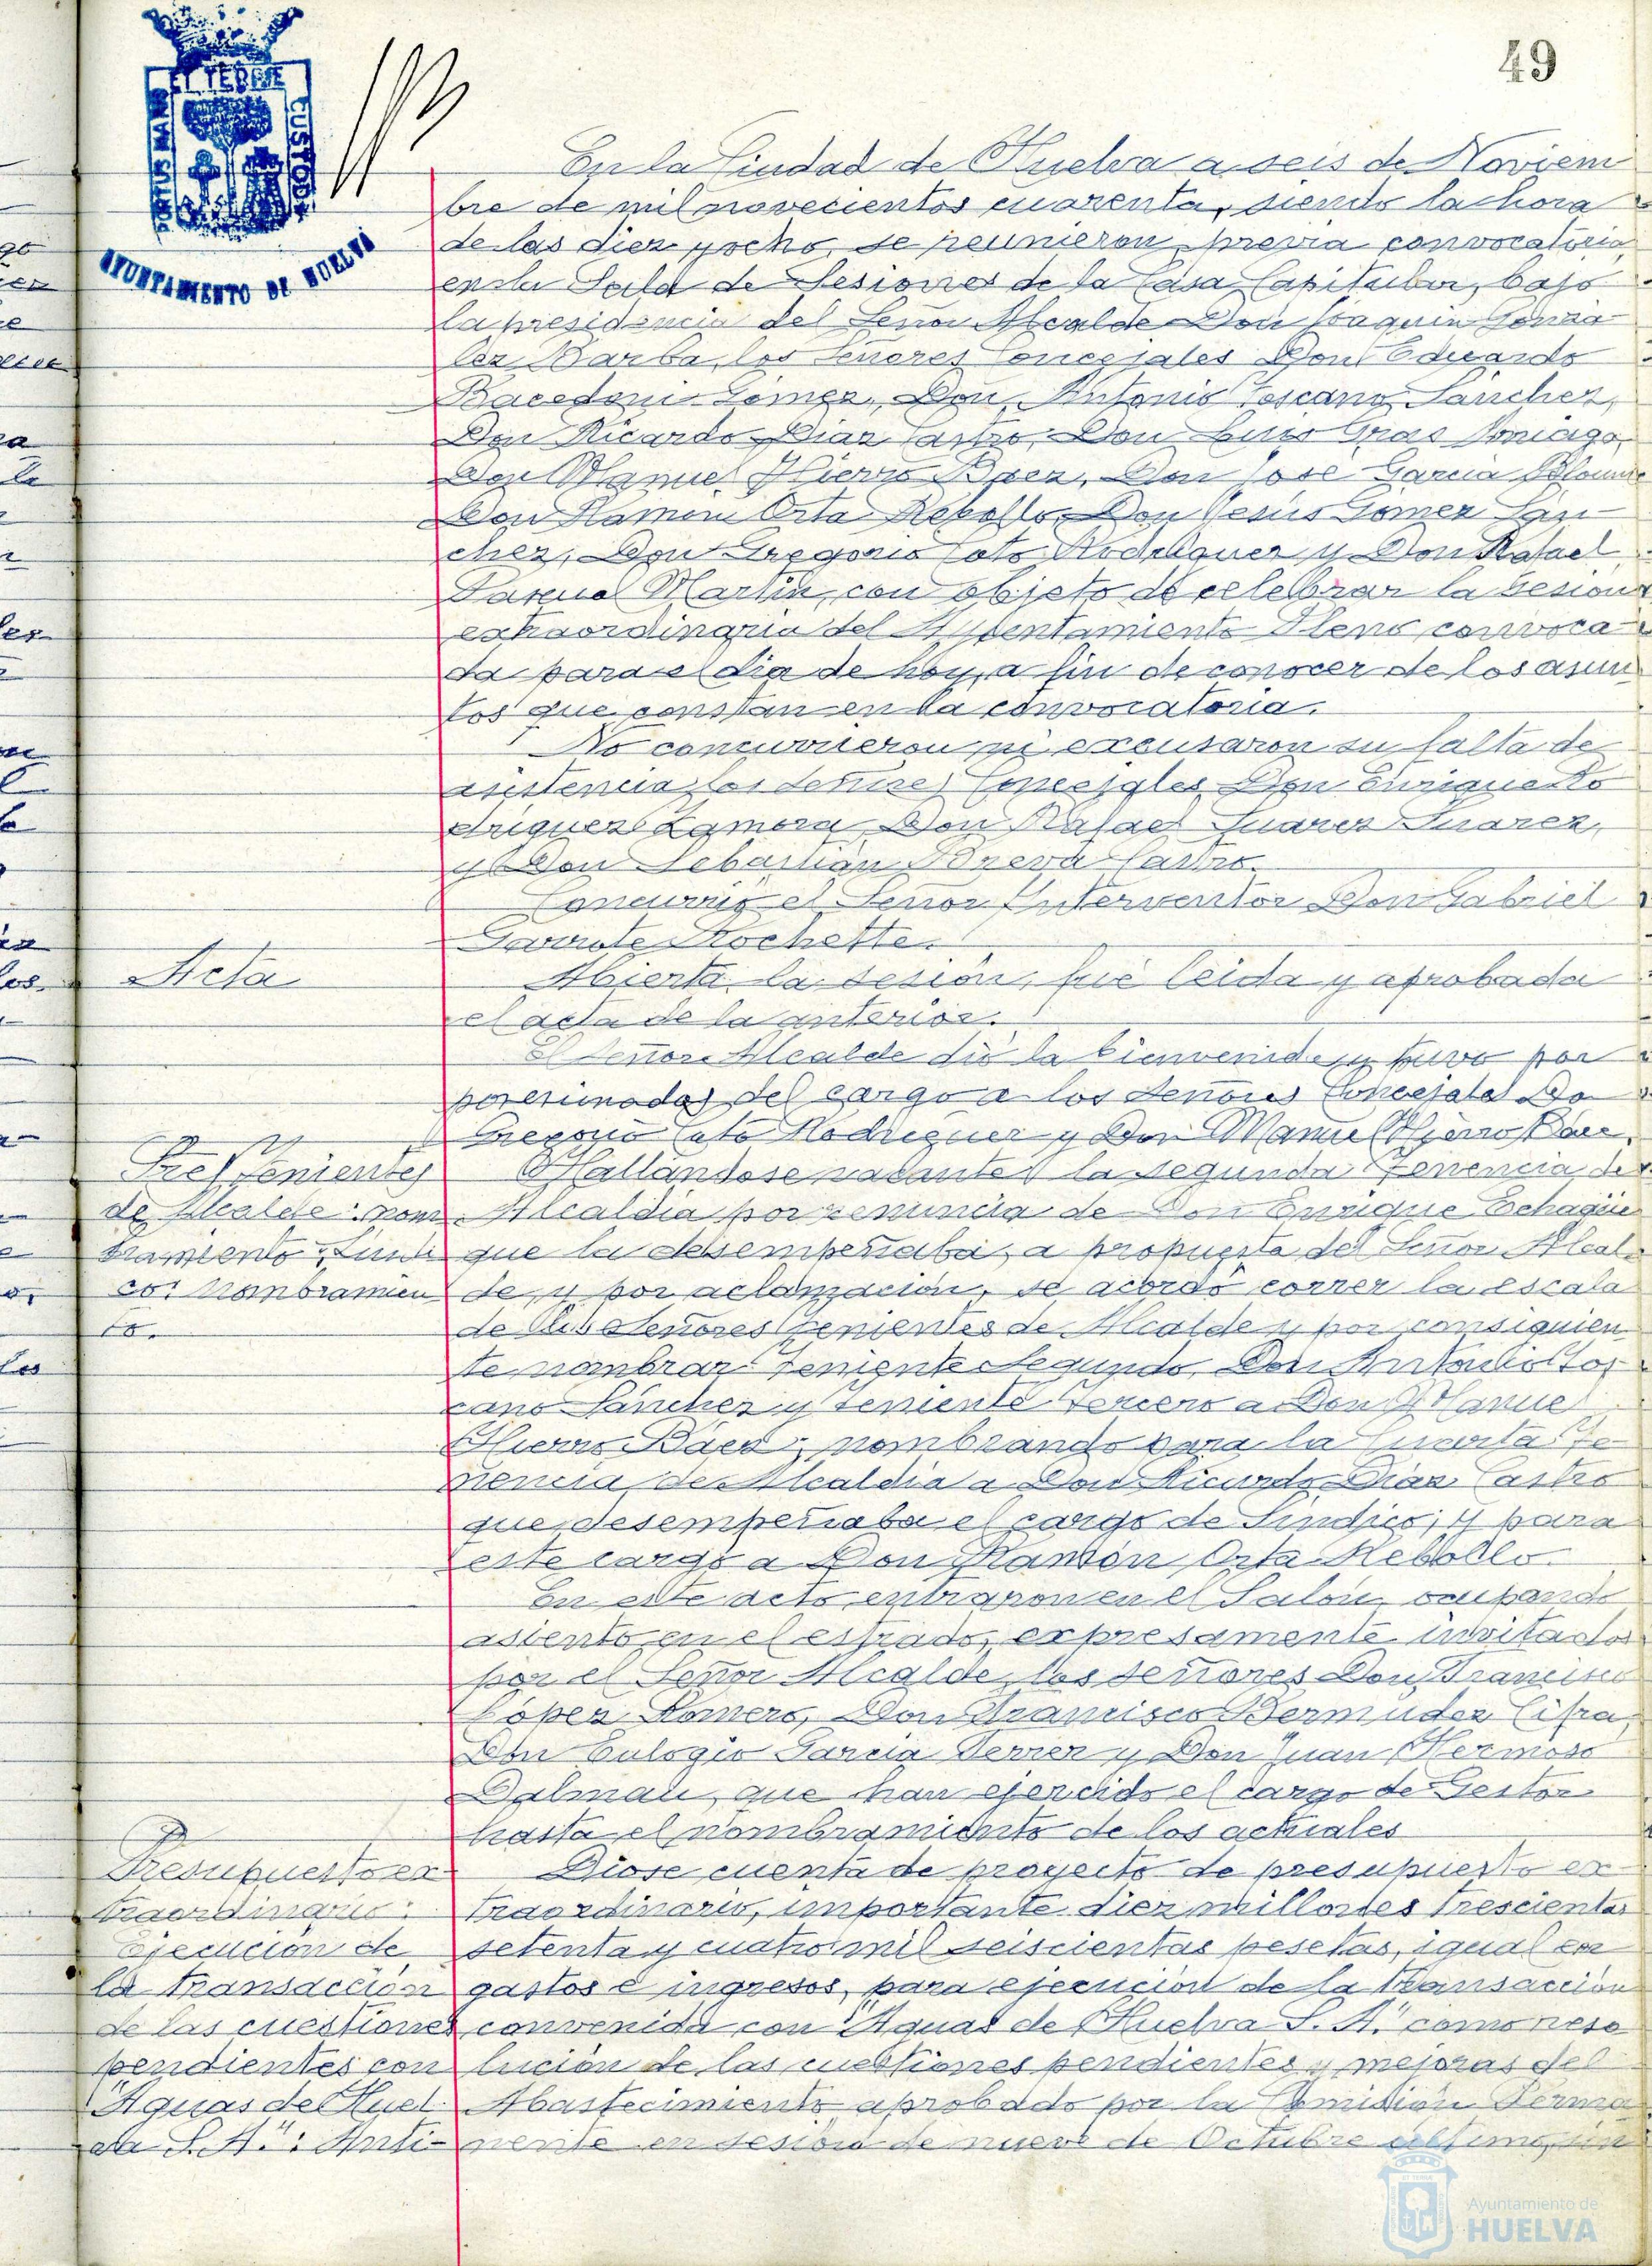 49
ET TERRE
PORTUS MARIS
CUSTODIA
AYUNTAMIENTO DE HUELVA
En la Ciudad de Huelva a seis de Noviem
bre de mil novecientos cuarenta, siendo la hora
de las diez y ocho, se reunieron, previa convocatoria
en la Sala de Sesiones de la Casa Capitular, bajo
la presidencia del Señor Alcalde Don Joaquin Gonza
lez Barba, los señores Concejales Don Eduardo
Gomez, Don Antonio Toscano Sanchez,
Don Ricardo Diaz Castro, Don Luis Gras
Don Manuel Hierro Baez, Don Jose Garcia
Don Ramon Orta Rebollo, Don Jesús Gomez Sán
chez, Don Gregorio Cato Rodriguez y Don Rafael
Martin, con objeto de celebrar la sesion
extraordinaria del Ayuntamiento Pleno convoca
da para el dia de hoy, a fin de conocer de los asun
tos que constan en la convocatoria.
No concurrieron ni excusaron su falta de
asistencia los señores Concejales Don Enrique Ro
driguez Zamora, Don Rafael Suarez Suarez,
y Don Sebastián Castro.
Concurrió el Señor Interventor Don Gabriel
Garrote Rochette.
Acta
Abierta la sesión, fué leida y aprobada
el acta de la anterior.
El Señor Alcalde dió la bienvenida y tuvo por
posesionados del cargo a los señores Concejales Do
Gregorio Cato Rodriguez y Don Manuel Hierro Baez.
Tres Tenientes
de Alcalde: nom
bramiento. Sindi
co: Nombramien
to.
Hallandose vacante la segunda Tenencia de
Alcaldia por renuncia de Don Enrique Echagüe
que la desempeñaba, a propuesta del Señor Alcal
de, y por aclamación, se acordó correr la escala
de los Señores Tenientes de Alcalde y por consiguien
te nombrar Teniente Segundo Don Antonio Tos
cano Sánchez y Teniente Tercero a Don Manuel
Hierro Báez; nombrando para la Cuarta Te
nencia de Alcaldia a Don Ricardo Diaz Castro
que desempeñaba el cargo de Sindico; y para
este cargo a Don Ramón Orta Rebollo.
En este acto entraron en el Salón, ocupando
asiento en el estrado, expresamente invitados
por el Señor Alcalde, los señores Don Francisco
López Romero, Don Francisco Bermudez Cifra,
Don Eulogio Garcia Ferrer y Don Juan Hermoso
Dalmau, que han ejercido el cargo de Gestor
hasta el nombramiento de los actuales
Presupuesto ex
traordinario:
Ejecución de
la transacción
de las cuestiones
pendientes con
"Aguas de Huel
va S.A.": Anti-
Diose cuenta de proyecto de presupuesto ex
traordinario, importante diez millones trescientas
setenta y cuatro mil seiscientas pesetas, igual en
gastos e ingresos, para ejecución de la transacción
convenida con "Aguas de Huelva S. A." como reso
lución de las cuestiones pendientes y mejoras del
Abastecimiento aprobado por la Comisión Perma
nente en sesion de nueve de Octubre último, un
Ayuntamiento de
HUELVA